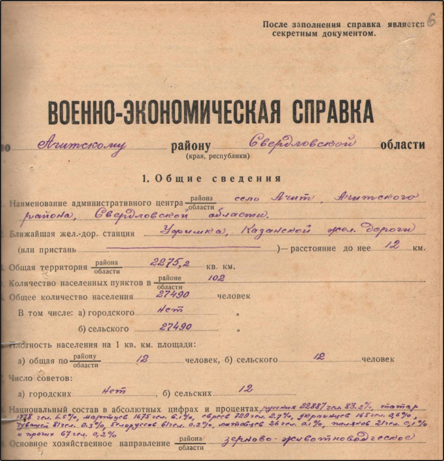 6
После заполнения справка является
секретным документом.
ВОЕННО-ЭКОНОМИЧЕСКАЯ СПРАВКА
по Ачитскому району Свердловской области
(края, республики)
1. Общие сведения
Наименование административного центра района/области село Ачит, Ачитского
района, Свердловской области.
Ближайшая жел.-дор. станция Уфимка, Казанской жел. дороги
(или пристань )—расстояние до нее 12 км.
Общая территория района/области 2275,2 кв. км.
Количество населенных пунктов в районе/области 102
Общее количество населения 27490 человек
В том числе: а) городского нет
б) сельского 27490
Плотность населения на 1 кв. км. площади:
а) общая по району/области 12 человек, б) сельского 12 человек
Число советов:
а) городских нет, б) сельских 12
Национальный состав в абсолютных цифрах и процентах русских 22887 чел. 83,3% татар
чел. марийцев 1675 чел. 6,1%, евреев чел. украинцев 165 чел. 0,6%
чувашей чел. 0,3%, белоруссов чел. чел. 0,1%, поляков чел. 0,1%
и прочие 67 чел. 0,2%
Основное хозяйственное направление района/области зерново-животноводческое